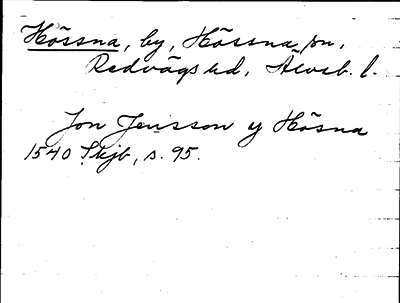 Hössna, by, Hössna sn,
Redvägs hd, Älvsb. l.
Jon Jensson y Hösna
1540 Skjb, s. 95.